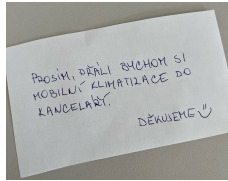 PROSÍM, PŘÁLI BYCHOM SI
MOBILNÍ KLIMATIZACE DO
KANCELÁŘÍ.
DĚKUJEME